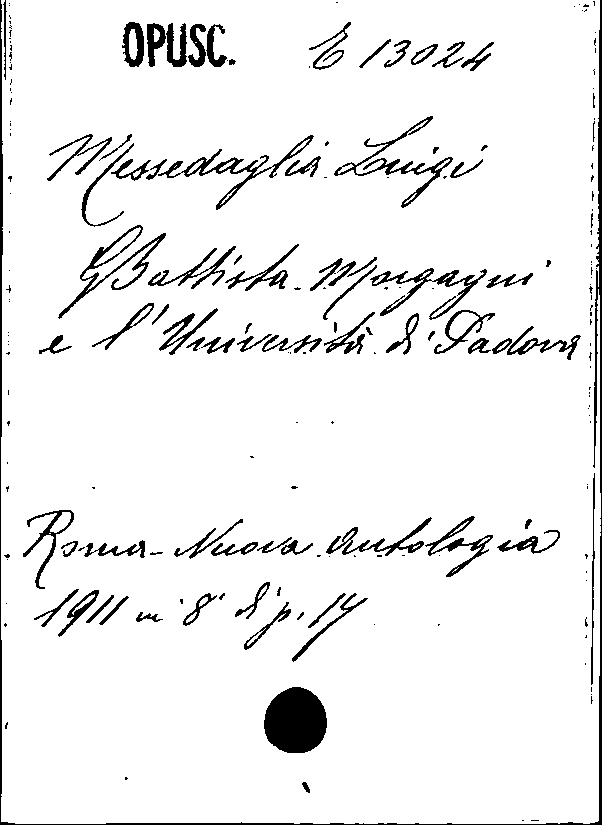 OPUSC. E 13024
Messedaglia Luigi
GBattista Morgagni
e l'Università di Padova
Roma - Nuova Antologia
1911 in 8° di p. 14